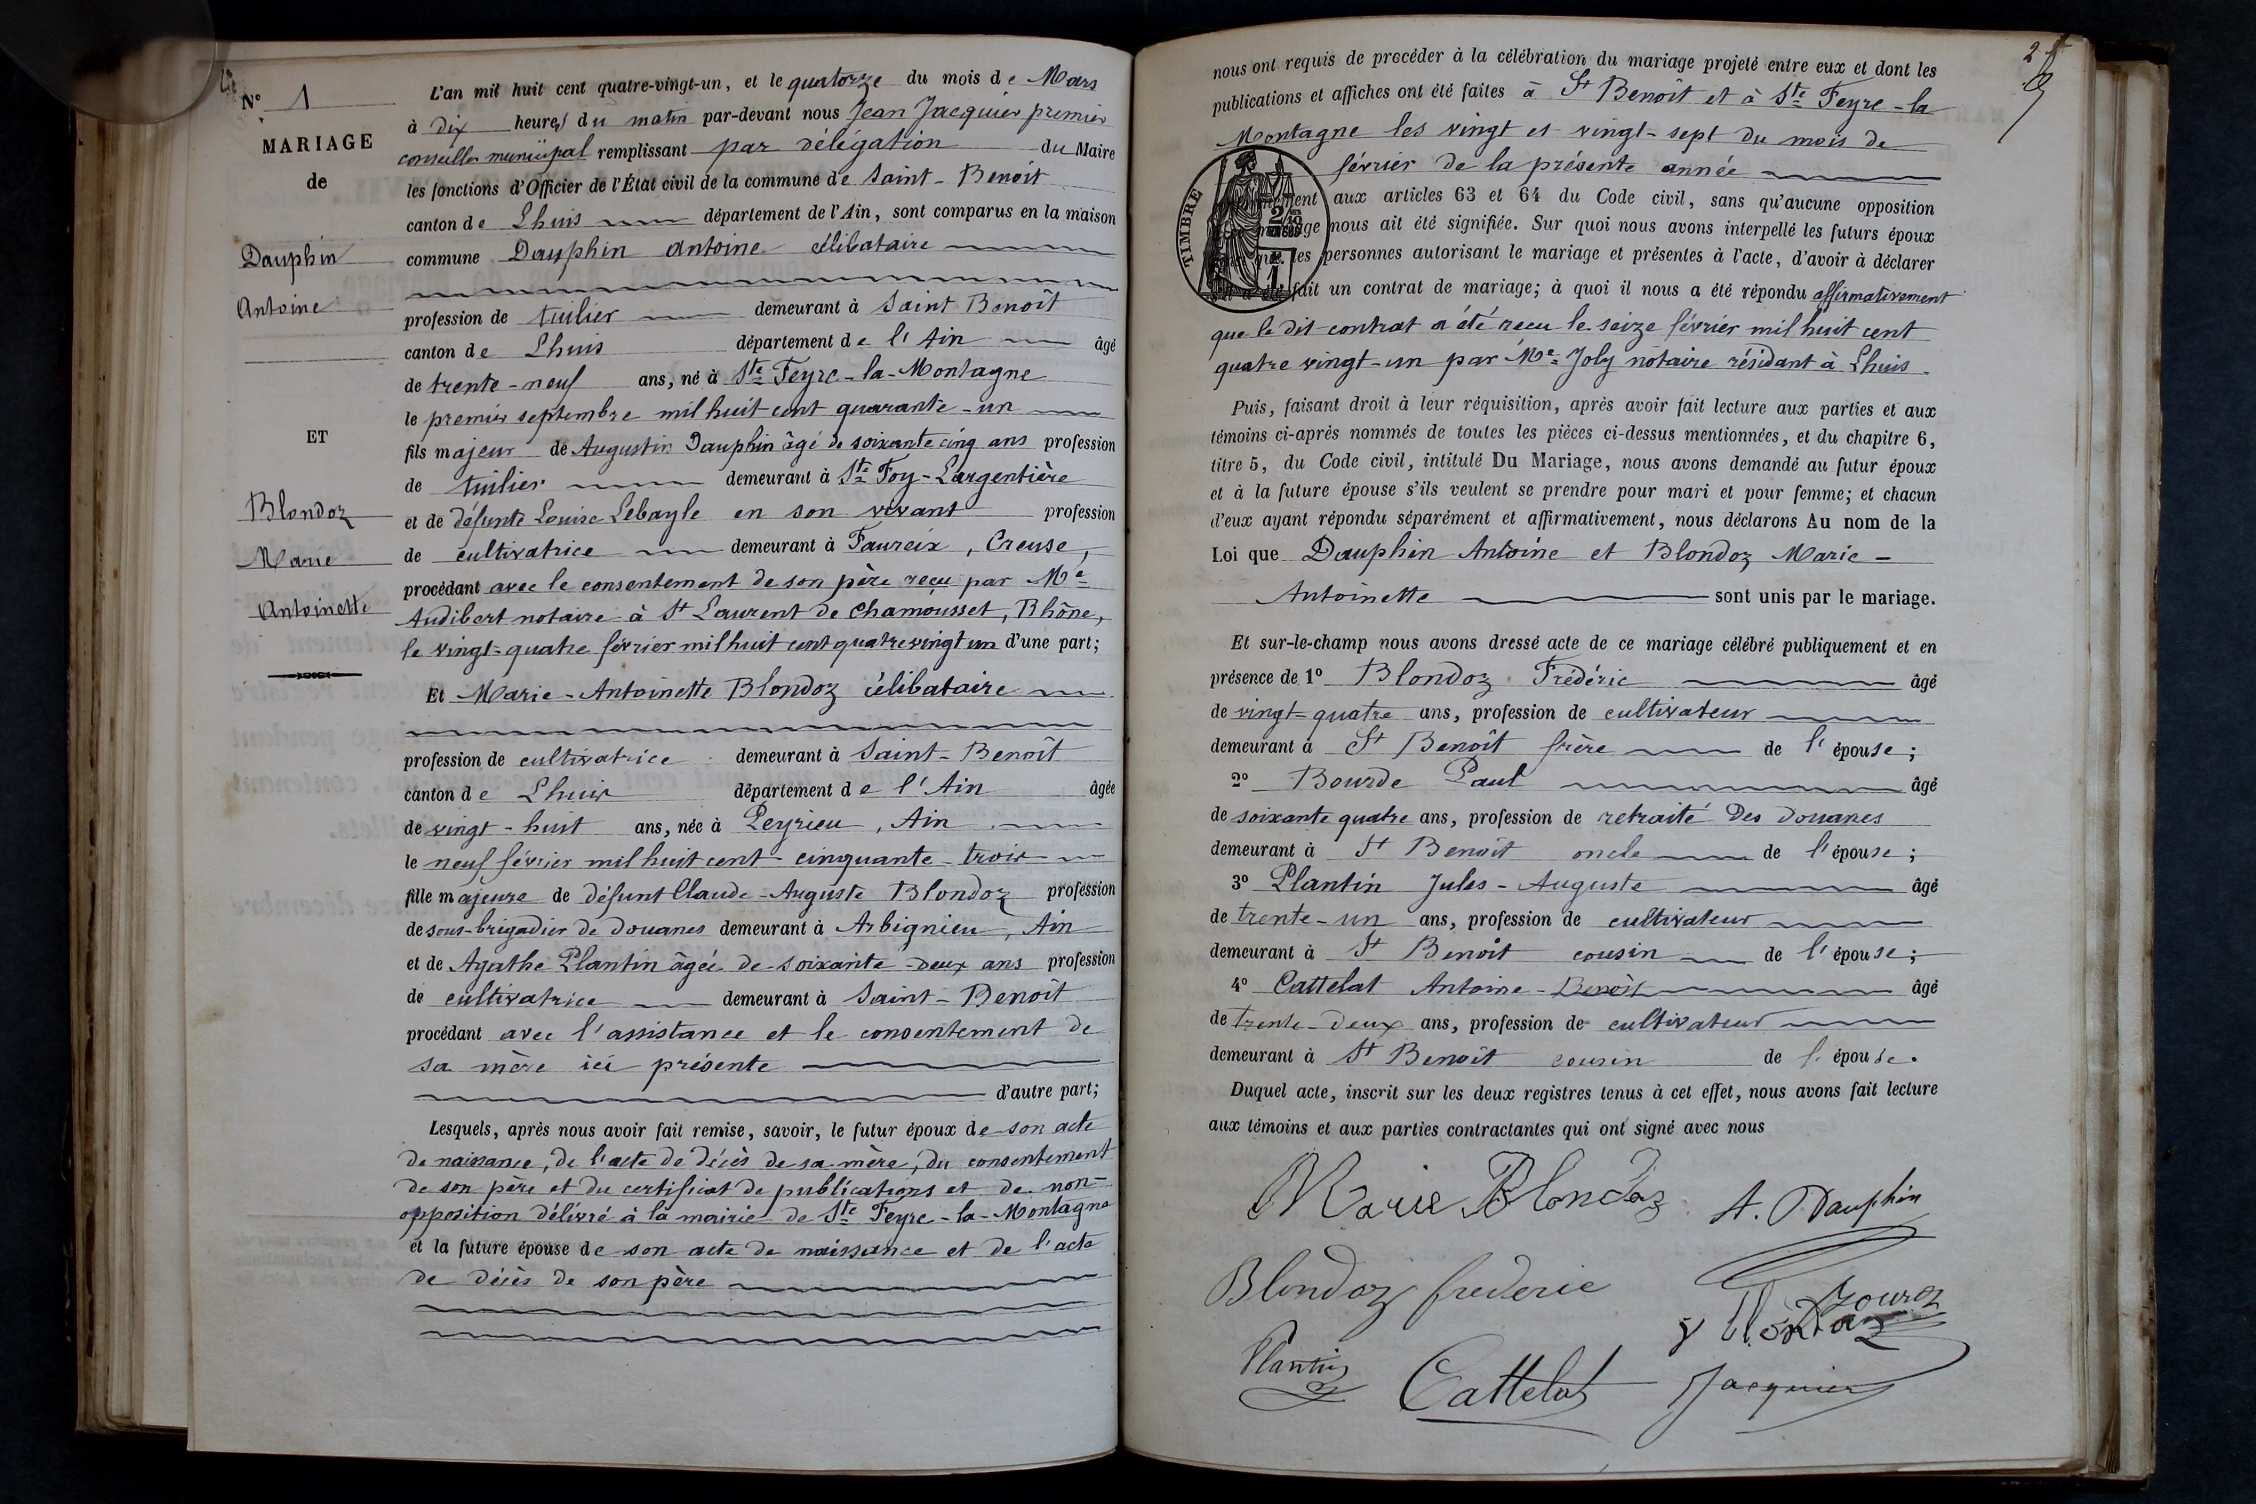 N° 1
MARIAGE
de
Dauphin
Antoine
ET
Blondoz
Marie
Antoinette
L'an mil huit cent quatre-vingt-un, et le quatorze du mois de Mars
à dix heures du matin par-devant nous Jean Jacquier premier
conseiller municipal remplissant par délégation du Maire
les fonctions d'Officier de l'État civil de la commune de Saint-Benoît
canton de Lhuis département de l'Ain, sont comparus en la maison
commune Dauphin Antoine célibataire
profession de tuilier demeurant à Saint Benoît
canton de Lhuis département de l'Ain âgé
de trente-neuf ans, né à Ste Feyre-la-Montagne
le premier septembre mil huit cent quarante-un
fils majeur de Augustin Dauphin âgé de soixante cinq ans profession
de tuilier demeurant à Ste Foy-Largentière
et de défunte Louise Lebayle en son vivant profession
de cultivatrice demeurant à Faureix, Creuse,
procédant avec le consentement de son père reçu par Me
Audibert notaire à St Laurent de Chamousset, Rhône,
le vingt-quatre février mil huit cent quatre vingt un d'une part;
Et Marie-Antoinette Blondoz célibataire
profession de cultivatrice demeurant à Saint-Benoît
canton de Lhuis département de l'Ain âgée
de vingt-huit ans, née à Peyrieu, Ain
le neuf février mil huit cent cinquante-trois
fille majeure de défunt Claude-Auguste Blondoz profession
de sous-brigadier de douanes demeurant à Arbignieu, Ain
et de Agathe Plantin âgée de soixante-deux ans profession
de cultivatrice demeurant à Saint-Benoît
procédant avec l'assistance et le consentement de
sa mère ici présente
d'autre part;
Lesquels, après nous avoir fait remise, savoir, le futur époux de son acte
de naissance, de l'acte de décès de sa mère, du consentement
de son père et du certificat de publications et de non-
opposition délivré à la mairie de Ste Feyre-la-Montagne
et la future épouse de son acte de naissance et de l'acte
de décès de son père
2
nous ont requis de procéder à la célébration du mariage projeté entre eux et dont les
publications et affiches ont été faites à St Benoît et à Ste Feyre-la
Montagne les vingt et vingt-sept du mois de
février de la présente année
TIMBRE
aux articles 63 et 64 du Code civil, sans qu'aucune opposition
nous ait été signifiée. Sur quoi nous avons interpellé les futurs époux
les personnes autorisant le mariage et présentes à l'acte, d'avoir à déclarer
fait un contrat de mariage; à quoi il nous a été répondu affirmativement
que le dit contrat a été reçu le seize février mil huit cent
quatre vingt-un par Me Joly notaire résidant à Lhuis
Puis, faisant droit à leur réquisition, après avoir fait lecture aux parties et aux
témoins ci-après nommés de toutes les pièces ci-dessus mentionnées, et du chapitre 6,
titre 5, du Code civil, intitulé Du Mariage, nous avons demandé au futur époux
et à la future épouse s'ils veulent se prendre pour mari et pour femme; et chacun
d'eux ayant répondu séparément et affirmativement, nous déclarons Au nom de la
Loi que Dauphin Antoine et Blondoz Marie-
Antoinette sont unis par le mariage.
Et sur-le-champ nous avons dressé acte de ce mariage célébré publiquement et en
présence de 1° Blondoz Frédéric âgé
de vingt-quatre ans, profession de cultivateur
demeurant à St Benoît frère de l'épouse;
2° Bourde Paul âgé
de soixante quatre ans, profession de retraité des Douanes
demeurant à St Benoît oncle de l'épouse;
3° Plantin Jules-Auguste âgé
de trente-un ans, profession de cultivateur
demeurant à St Benoît cousin de l'épouse;
4° Cattelat Antoine-Benoît âgé
de trente-deux ans, profession de cultivateur
demeurant à St Benoît cousin de l'épouse.
Duquel acte, inscrit sur les deux registres tenus à cet effet, nous avons fait lecture
aux témoins et aux parties contractantes qui ont signé avec nous
Marie Blondoz A. Dauphin
Blondoz frederic
Plantin Cattelat Jacquier